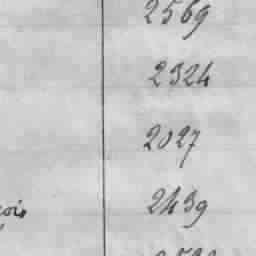 2569
2324
2027
2439